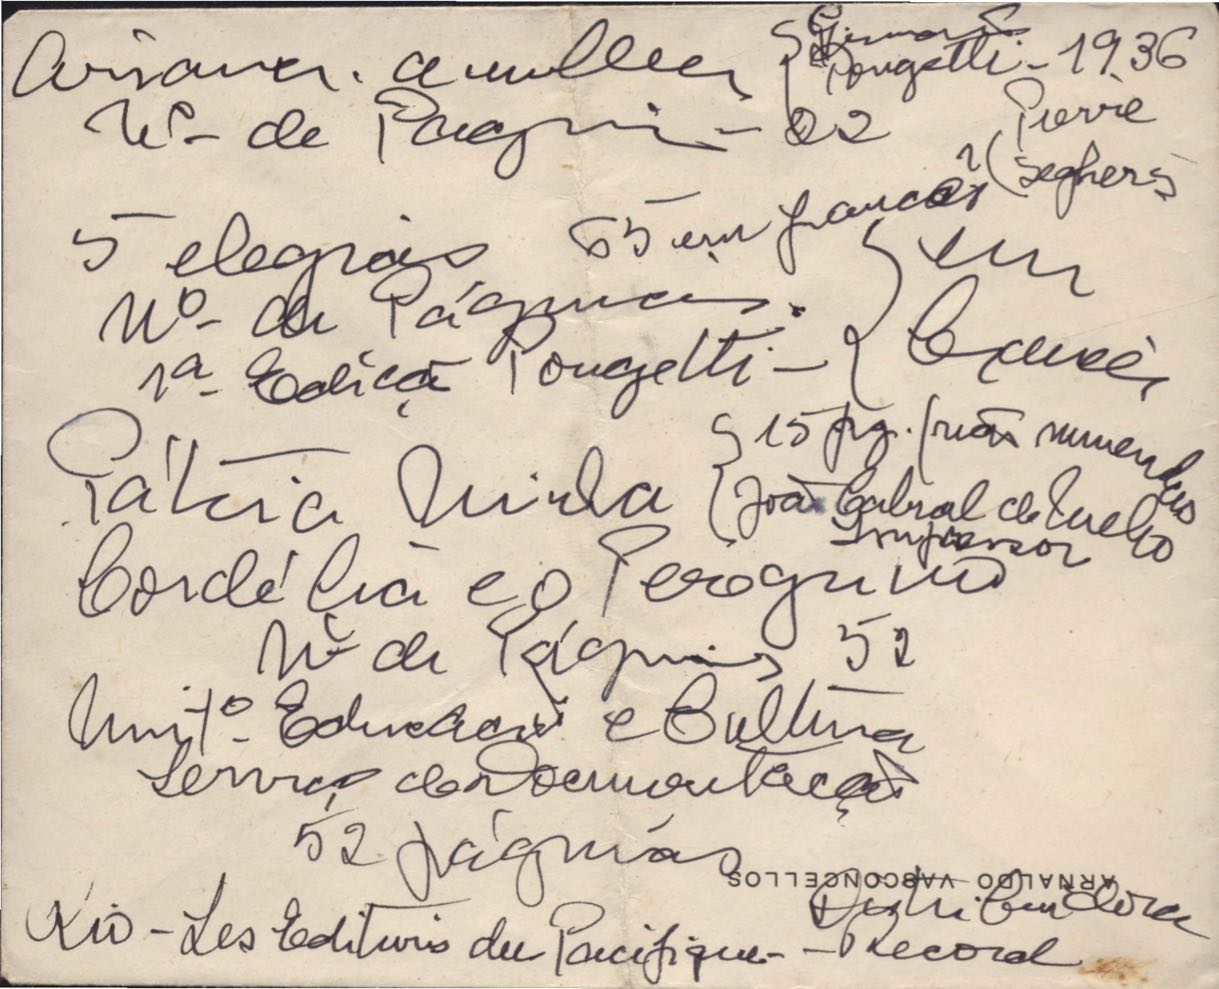 Ariana. a mulher { Irmãos Pongetti - 1936
Nº - de Pagin - 22
Pierre
Seghers
5 elegias 65 em francês
Nº - de Páginas.
1ª - Edição Pongetti -
{ em
Pátria Minha { 15 pg. (não numeradas
João Cabral de Mello
Impressor
Cordélia e o Peregrino
Nº de Páginas 52
Minitº - Educação e Cultura
Serviço de Documentação
52 páginas
ARNALDO VASCONCELLOS
Distribuidora
Rio - Les Editions du Pacifique - - Record